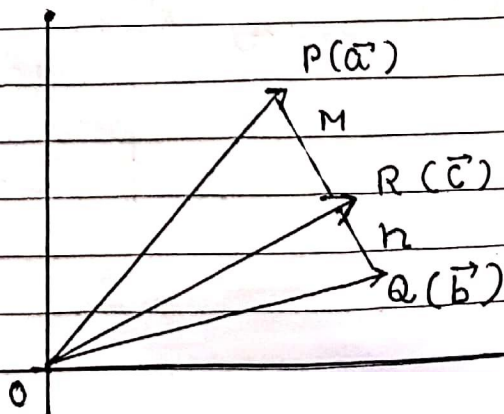 P(a⃗)
M
R (c⃗)
n
Q(b⃗)
O